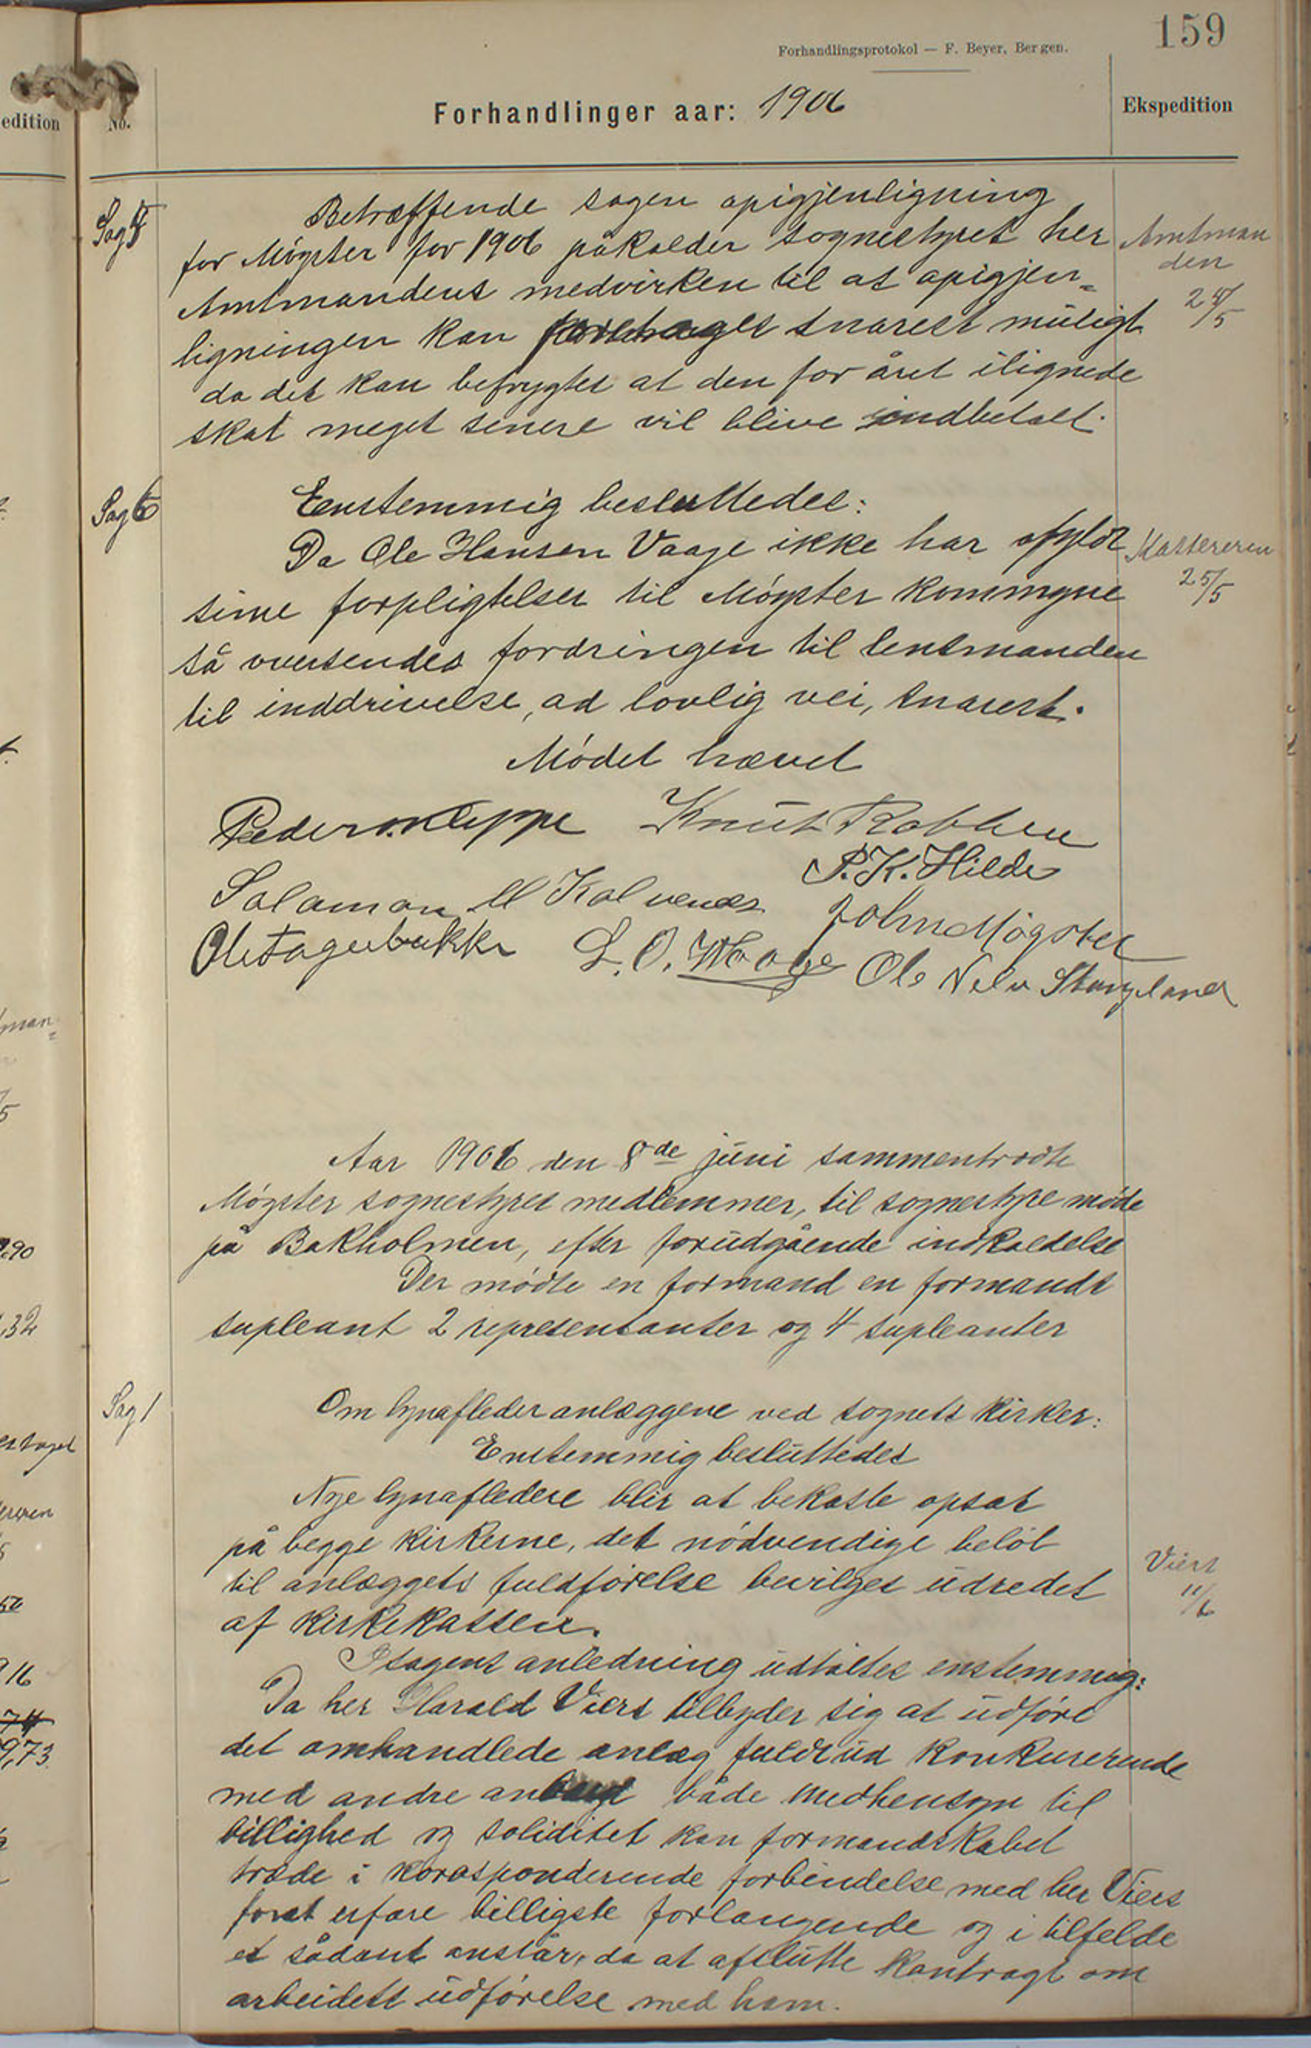 159
Forhandlingsprotokol — F. Beyer, Bergen.
edition
No.
Forhandlinger aar: 1906
Ekspedition
Sag 5
Betræffende sagen opigjenligning
for Møgster for 1906 påkalder sognestyret her
Amtmandens medvirken til at opigjen=
ligningen kan foretages snarest muligt
da det kan befrygtes at den for året ilignede
skat meget senere vil blive indbetalt.
Amtman
den
25/5
Sag 6
Eenstemmig besluttedes:
Da Ole Hansen Vaage ikke har opfyldt
sine forpligtelser til Møgster kommune
så oversendes fordringen til lensmanden
til inddrivelse, ad lovlig vei, snarest.
Kassereren
25/5
Mødet hævet
Peder O. Kleppe Knut Rabben
P. K. Hilde
Salamon M Kalvenes John Møgster
Ole Fagerbakke L. O. Waage Ole Nels Stangeland
Aar 1906 den 8de juni sammentrådte
Møgster sognestyres medlemmer, til sognestyremøde
på Bakholmen, efter forudgående indkaldelse
Der mødte en formand en formands
supleant 2 representanter og 4 supleanter
Sag 1
Om lynafleder anlæggene ved sognets kirker:
Enstemmig besluttedes
Nye lynafledere blir at bekoste opsat
på begge kirkerne, det nødvendige beløb
til anlæggets fuldførelse bevilges udredet
af kirkekassen.
Viers
11/6
I sagens anledning udtaltes enstemmig:
Da her Harald Viers tilbyder sig at udføre
det omhandlede anlæg fuldt ud konkurerende
med andre anbud både medhensyn til
billighed og soliditet kan formandskabet
træde i korasponderende forbindelse med her Viers
forat erfare billigste forlangende og i tilfelde
et sådant anstår, da at afslutte kontragt om
arbeidets udførelse med ham.